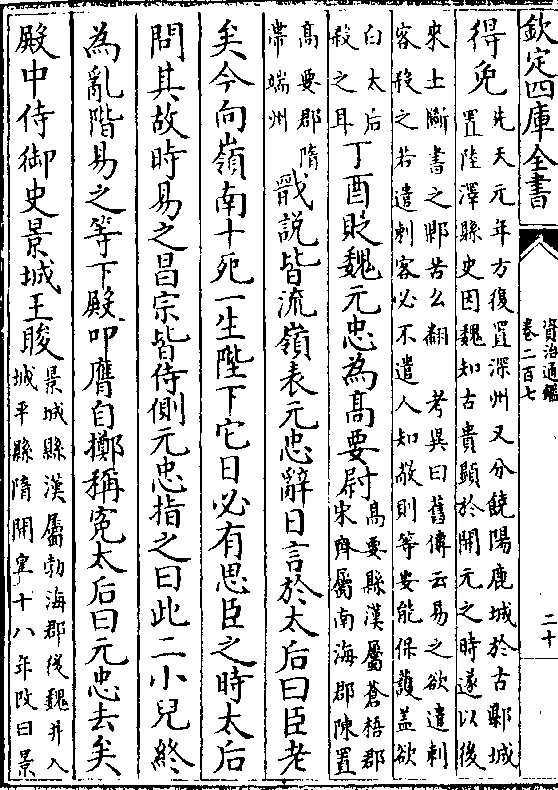 欽定四庫全書
資治通鑑
卷二百七
二十
得免
先天元年方復置深州又分饒陽鹿城於古鄡城
置陸澤縣史因魏知古貴顯於開元之時遂以後
來土斷書之鄡苦么翻　考異曰舊傳云易之欲遣刺
客殺之若遣刺客必不遣人知敬則等安能保護蓋欲
白太后
殺之耳
丁酉貶魏元忠為高要尉
高要縣漢屬蒼梧郡
宋齊屬南海郡陳置
高要郡隋
帶端州
戩說皆流嶺表元忠辭日言於太后曰臣老
矣今向嶺南十死一生陛下它日必有思臣之時太后
問其故時易之昌宗皆侍側元忠指之曰此二小兒終
為亂階易之等下殿叩膺自擲稱冤太后曰元忠去矣
殿中侍御史景城王晙
景城縣漢屬勃海郡後魏并入
城平縣隋開皇十八年改曰景